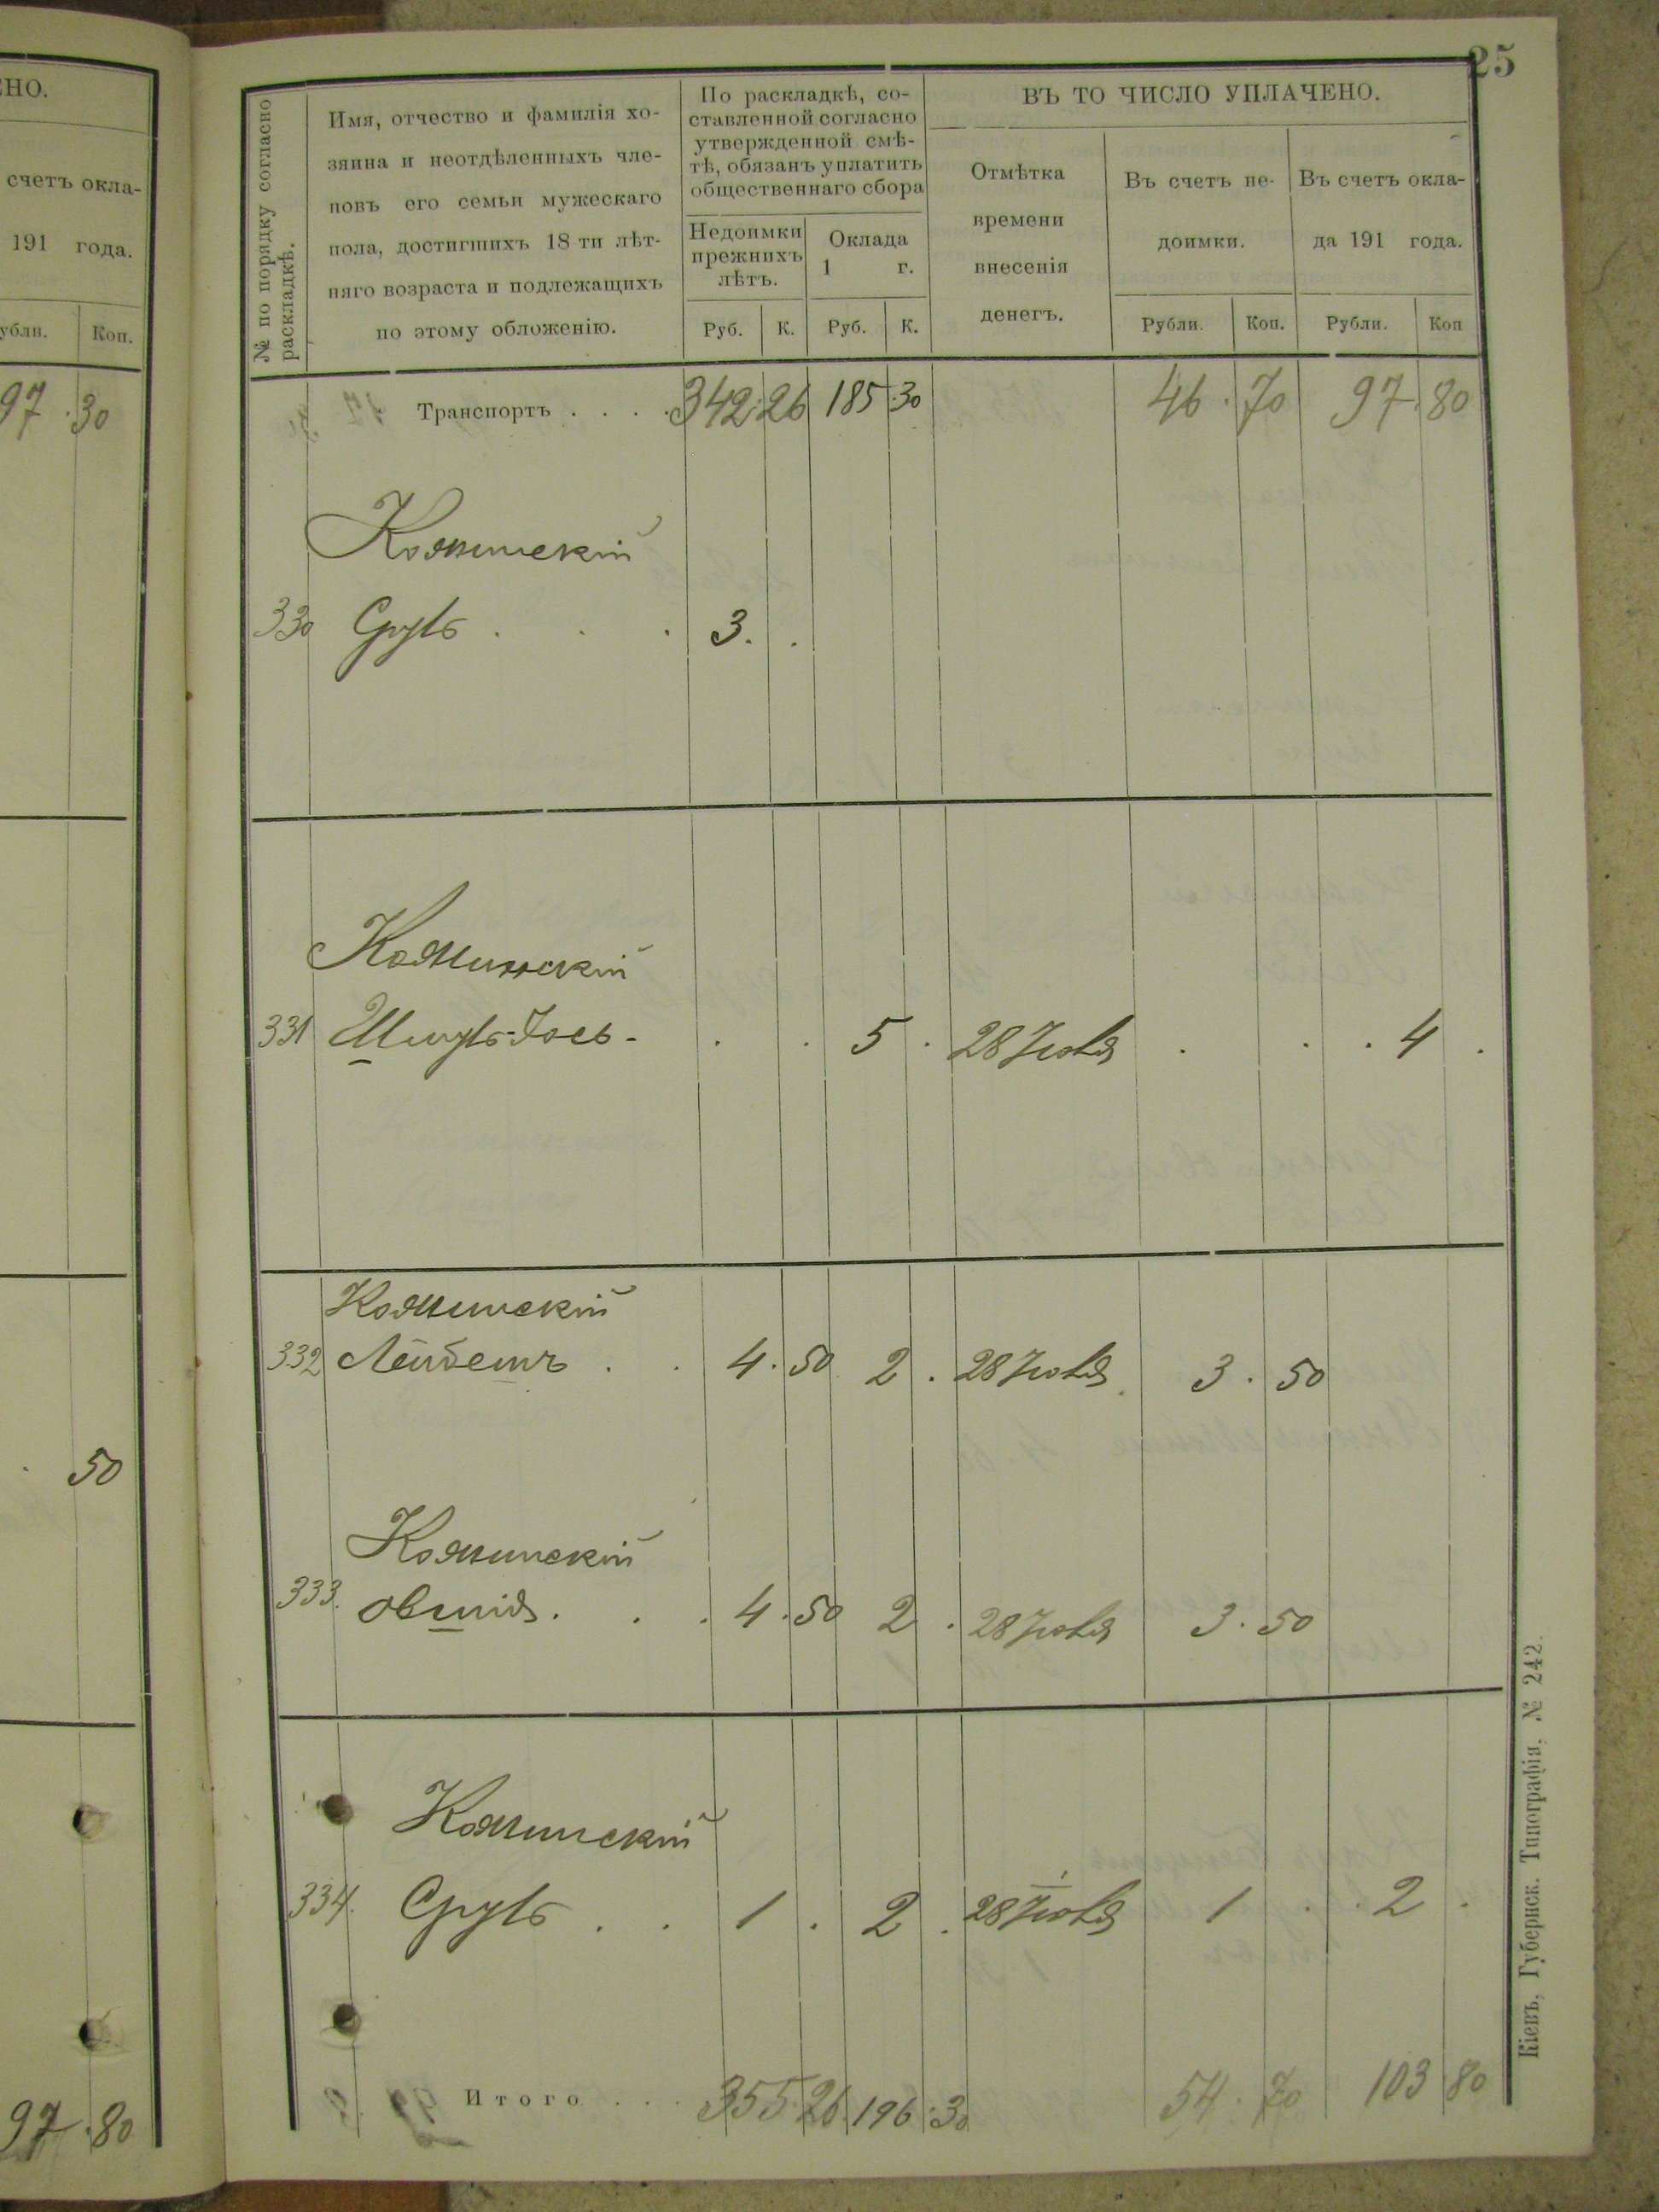 НО.
счетъ окла-
191 года.
Коп.
97 . 30
50
97 . 80
25
№ по порядку согласно раскладкѣ.
Имя, отчество и фамилія хо-
зяина и неотдѣленныхъ чле-
новъ его семьи мужескаго
пола, достигшихъ 18-ти лѣт-
няго возраста и подлежащихъ
по этому обложенію.
По раскладкѣ, со-
ставленной согласно
утвержденной смѣ-
тѣ, обязанъ уплатить
общественнаго сбора
Недоимки
прежнихъ
лѣтъ.
Оклада
1 г.
Руб. К. Руб. К.
ВЪ ТО ЧИСЛО УПЛАЧЕНО.
Отмѣтка
времени
внесенія
денегъ.
Въ счетъ не-
доимки.
Въ счетъ окла-
да 191 года.
Рубли. Коп. Рубли. Коп
Транспортъ . . . . 342.26 185.30 46.70 97.80
330 Сруль . . . 3. .
331 Шмуль-Іось - . . 5 . 28 Іюля . . . 4 .
332 Лейбешъ . . 4.50 2 . 28 Іюля. 3.50
333. Овшія . . . 4.50 2 . 28 Іюля 3.50
334. Сруль . . 1 . 2 . 28 Іюля 1 . . 2 .
Итого . . . 355.26. 196.30 54.70 103 80
Кіевъ, Губернск. Типографія, № 242.